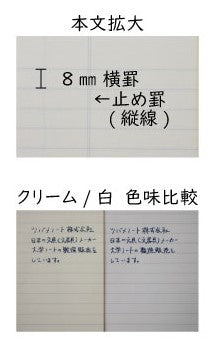 本文拡大
8mm 横罫
←止め罫
(縦線)
クリーム / 白 色味比較
ツバメノート株式会社
日本の文具(文房具)メーカー
大学ノートの製造販売を
しています。
ツバメノート株式会社
日本の文具(文房具)メーカー
大学ノートの製造販売を
しています。